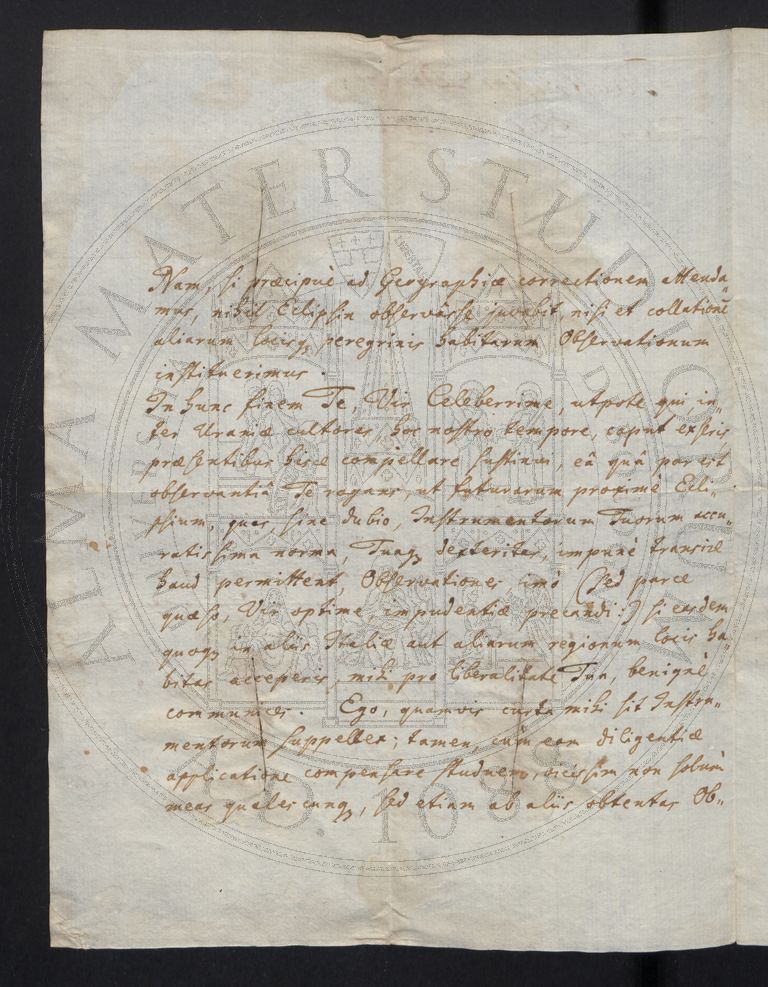 Nam, si præcipuè ad Geographiæ correctionem attenda„
mus, nihil Eclipsin observâsse juvabit, nisi et collationē
aliarum locisq; peregrinis habitarum Observationum
instituerimus.
In hunc finem Te, Vir Celeberrime, utpote qui in„
ter Uraniæ cultores, hoc nostro tempore, caput exseris
præsentibus hisce compellare sustinui, eâ quâ par est
observantiâ Te rogans, ut futurarum proximè Ecli„
psium, quas sine dubio, Instrumentorum Tuorum accu„
ratissima norma, Tuaq; dexteritas, impunè transire
haud permittent, Observationes, imò (sed parce
quæso, Vir optime, impudentiæ precandi:) si easdem
quoq; in aliis Italiæ aut aliarum regionum locis ha„
bitas acceperis, mihi pro liberalitate Tua, benignè
communices. Ego, quamvis curta mihi sit Instru„
mentorum suppellex; tamen, cùm eam diligentiæ
applicatione compensare studuero, vicissim non solùm
meas qualescunq;, sed etiam ab aliis obtentas Ob„
ALMA MATER STUDIORUM
A.D. 1088